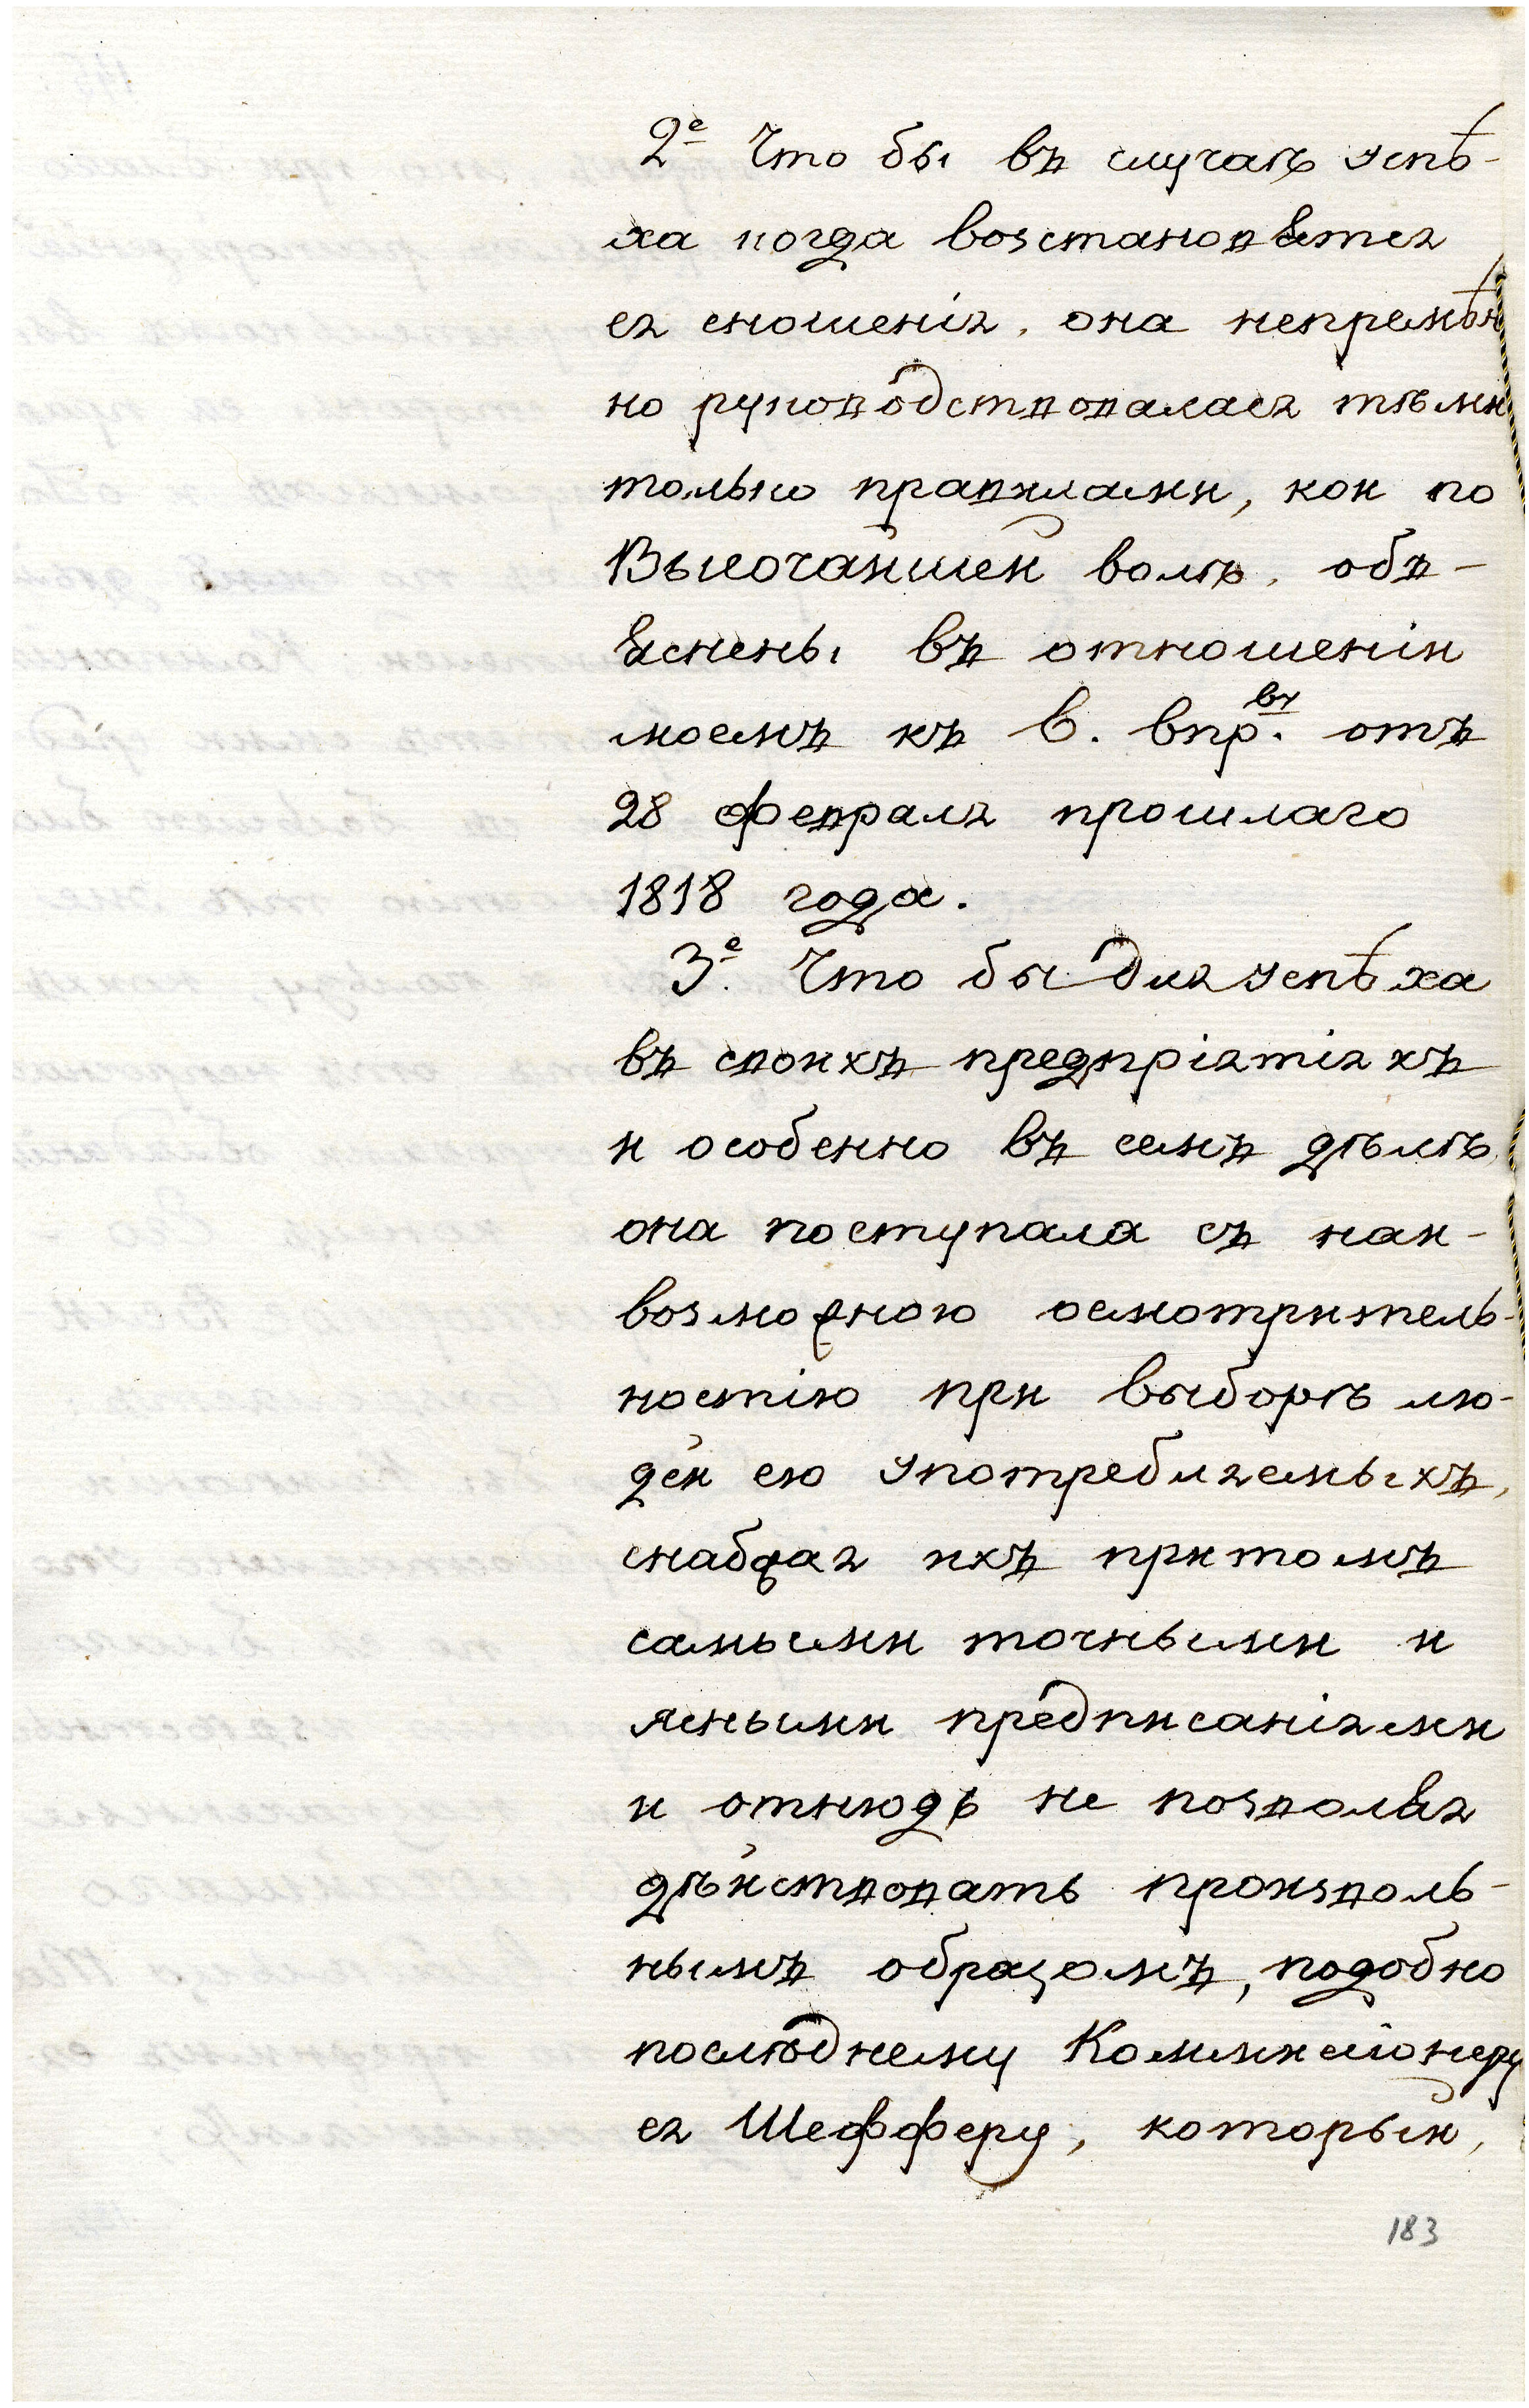 2е Что бы въ случаѣ успѣ-
ха когда возстановятся
ея сношенія, она непремѣн
но руководствовалася тѣми
только правилами, кои по
Высочайшей волѣ, объ-
яснены въ отношеніи
моемъ къ в. впр.ву отъ
28 февраля прошлаго
1818 года.
3е. Что бы для успѣха
въ своихъ предпріятіяхъ
и особенно въ семъ дѣлѣ,
она поступала съ наи-
возможною осмотритель-
ностію при выборѣ лю-
дей ею употребляемыхъ,
снабжая ихъ притомъ
самыми точными и
ясными предписаніями
и отнюдь не позволяя
дѣйствовать произволь-
нымъ образомъ, подобно
послѣднему Коммисіонеру
ея Шефферу, который,
183